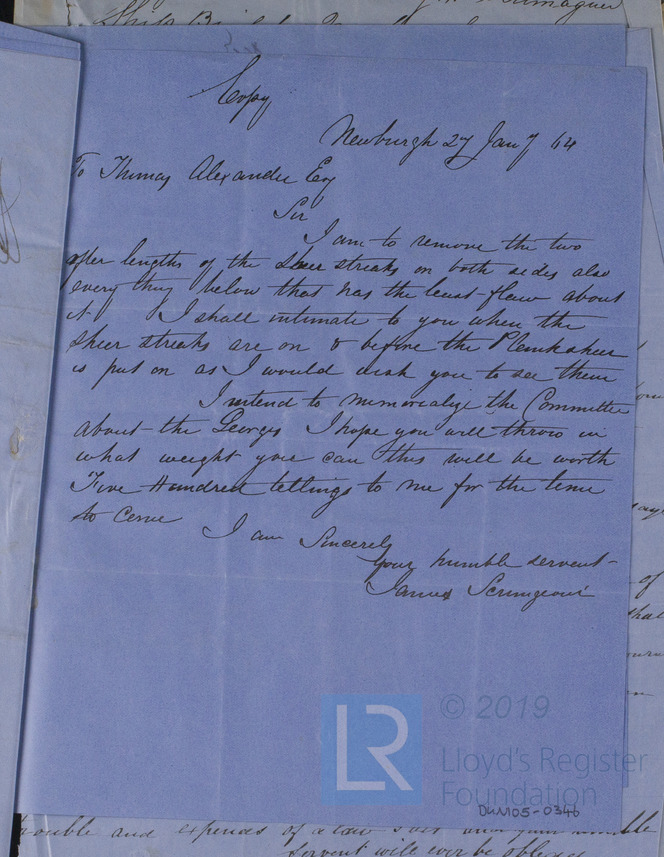 Copy
Newburgh 27 Jany 64
To Thomas Alexander Esq
Sir
I am to remove the two
after lengths of the sheer streaks on both sides also
every thing below that has the least flaw about
it I shall intimate to you when the
sheer streaks are on & before the Planksheer
is put on as I would wish you to see them
I intend to memorialize the Committee
about the Georges I hope you will throw in
what weight you can this will be worth
Five Hundred tellings to me for the time
to come
I am Sincerely
Your humble servent
James Scrimgeour
LR
© 2019
Lloyd's Register
Foundation
DUN05-0346
trouble and expences of a law
servent will ever be obliged